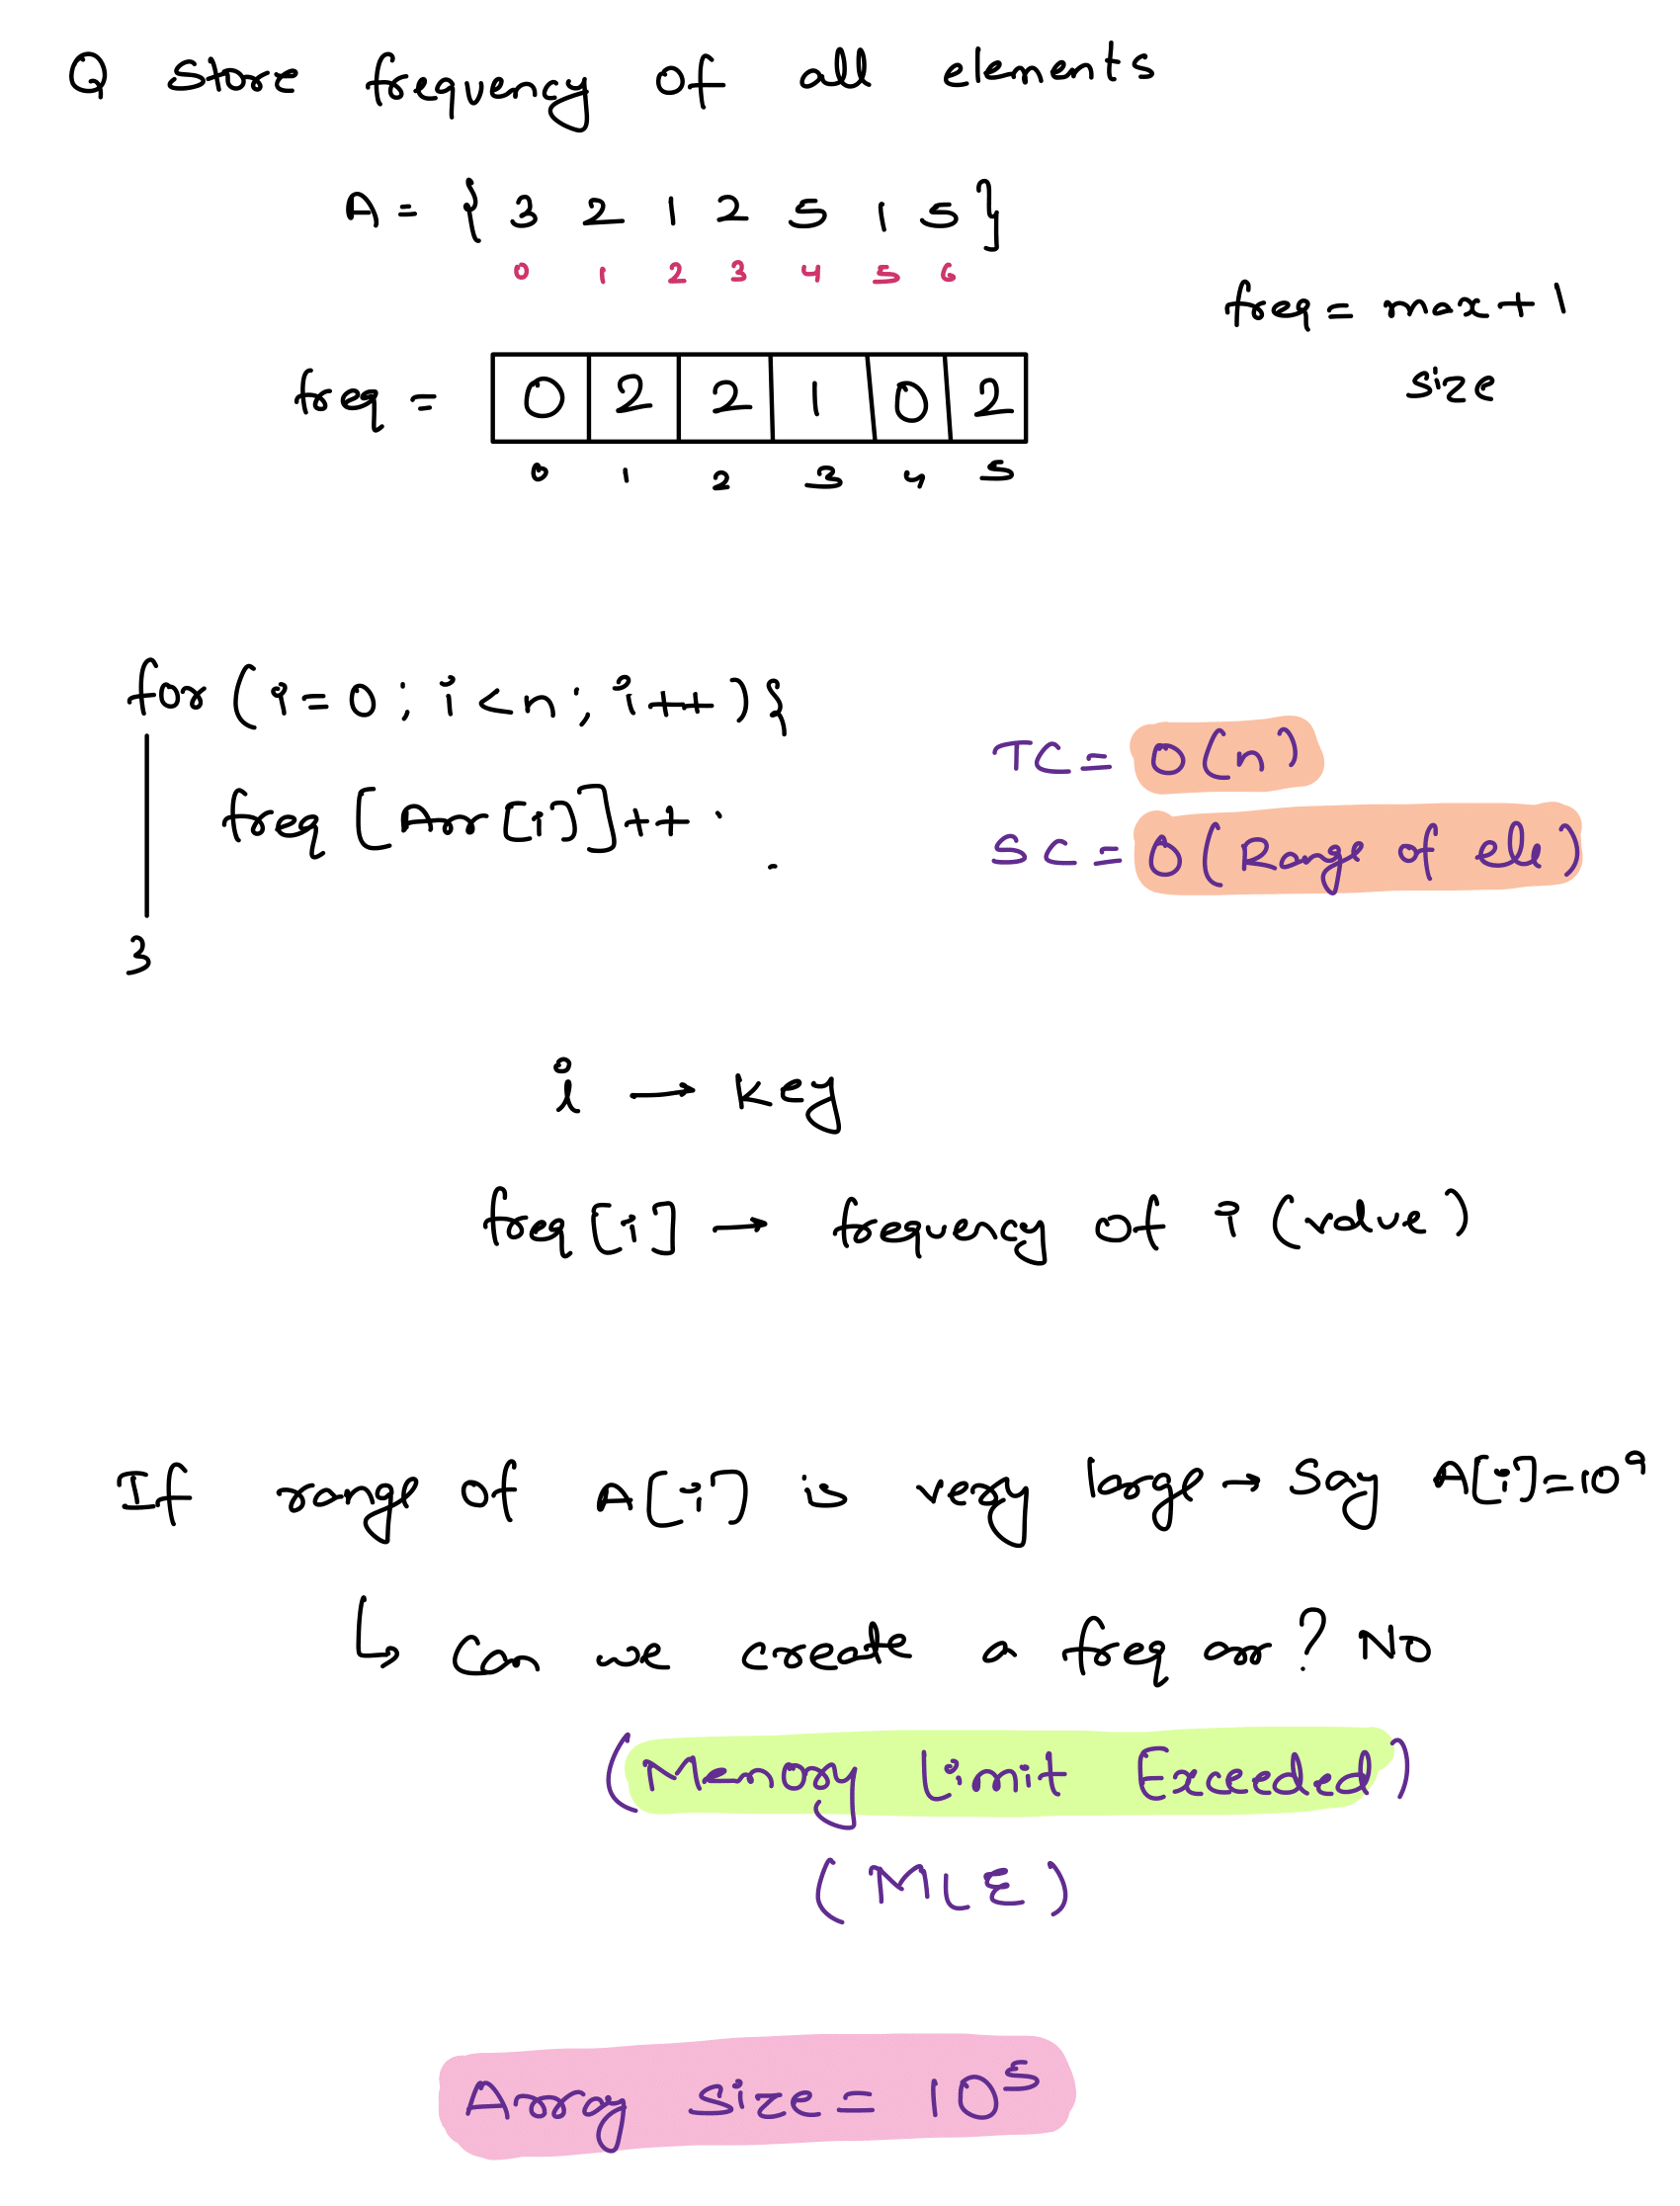 Q store frequency of all elements
A = { 3 2 1 2 5 1 5 }
0 1 2 3 4 5 6
freq = max + 1
size
freq = 0 2 2 1 0 2
0 1 2 3 4 5
for (i=0 ; i<n ; i++){
freq [Arr[i]]++ ;
}
TC = O(n)
SC = O(Range of ele)
i → key
freq[i] → frequency of i (value)
If range of A[i] is very large → Say A[i]=10⁹
↳ can we create a freq arr? NO
(Memory Limit Exceeded)
(MLE)
Array size = 10⁵